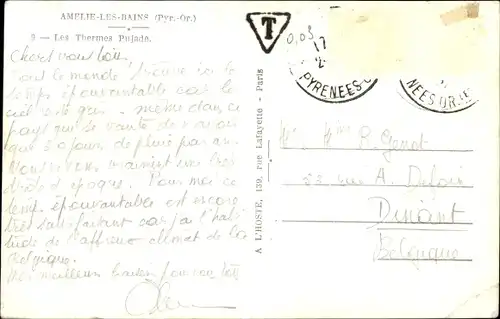 AMELIE-LES-BAINS (Pyr.-Or.)
9 - Les Thermes Pujade.
Chers vous tous.
Tout le monde trouve ici le
temps épouvantable car le
ciel reste gris - même dans ce
pays qui se vante de n'avoir
que 30 jours de pluie par an.
Nous vivons vraiment une très
drôle d'époque. Pour moi ce
temps épouvantable est encore
très satisfaisant car j'ai l'habi
tude de l'affreux climat de la
Belgique.
Mes meilleurs baisers pour vous tous
A L'HOSTE, 139, rue Lafayette - Paris
T
0,03
17
PYRENEES-O
NEES OR
Mr Mme P. Genot
33 rue A. Defoin
Dinant
Belgique